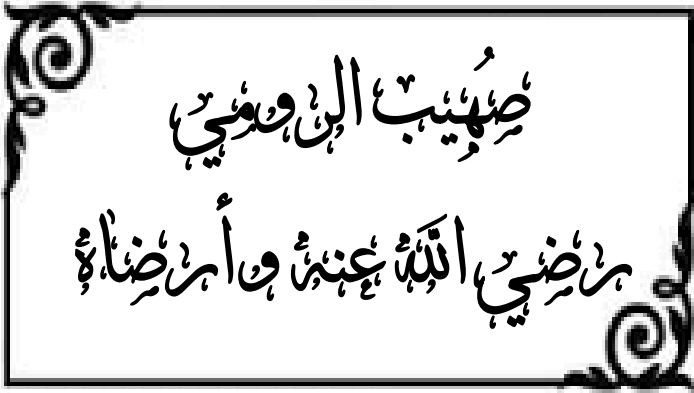 صُهيب الرومي
رضي اللَّه عنه وأرضاه